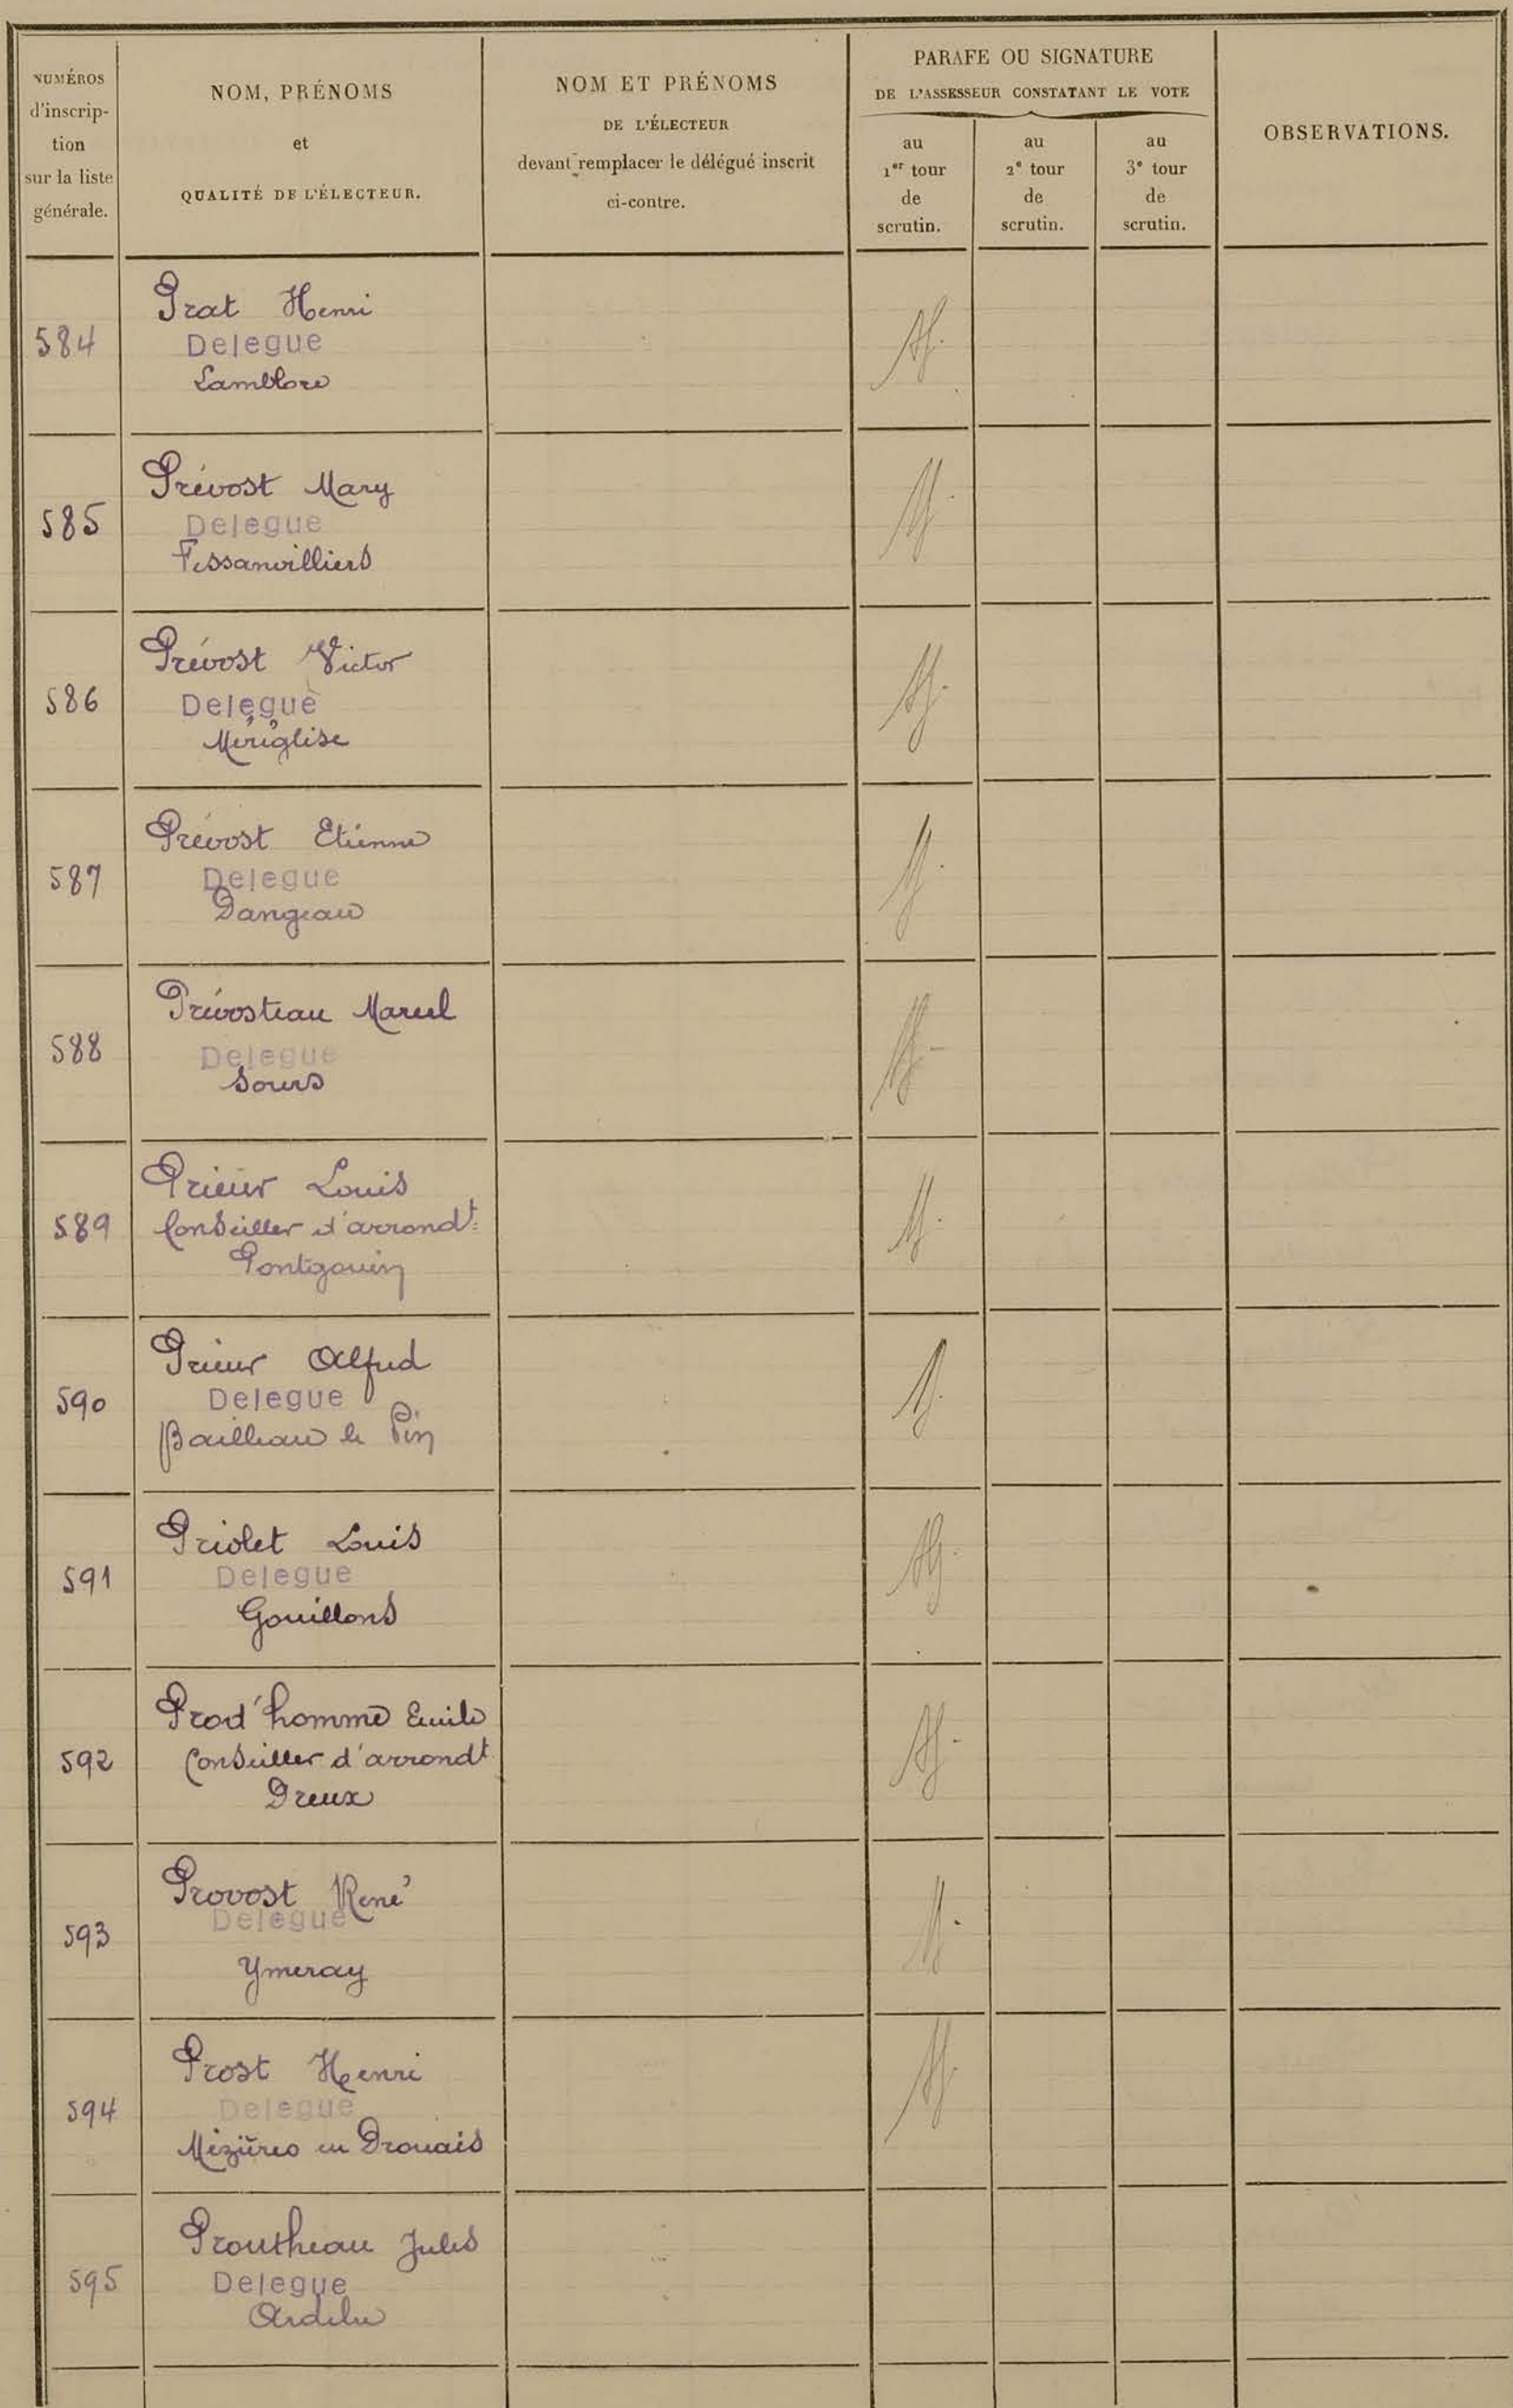 NUMÉROS
d'inscrip-
tion
sur la liste
générale.
NOM, PRÉNOMS
et
QUALITÉ DE L'ÉLECTEUR.
NOM ET PRÉNOMS
DE L'ÉLECTEUR
devant remplacer le délégué inscrit
ci-contre.
PARAFE OU SIGNATURE
DE L'ASSESSEUR CONSTATANT LE VOTE
au
1er tour
de
scrutin.
au
2e tour
de
scrutin.
au
3e tour
de
scrutin.
OBSERVATIONS.
584
Prat Henri
Delegue
Lamblore
585
Prévost Mary
Delegue
Fessanvilliers
586
Prévost Victor
Delegue
Méréglise
587
Prévost Etienne
Delegue
Dangeau
588
Prévosteau Marcel
Delegue
Sours
589
Prieur Louis
Conseiller d'arrondt
Pontgouin
590
Prieur Alfred
Delegue
Bailleau le Pin
591
Priolet Louis
Delegue
Gouillons
592
Prod'homme Emile
Conseiller d'arrondt
Dreux
593
Provost René
Delegue
Ymeray
594
Prost Henri
Delegue
Mézières en Drouais
595
Proutheau Jules
Delegue
Ardelu